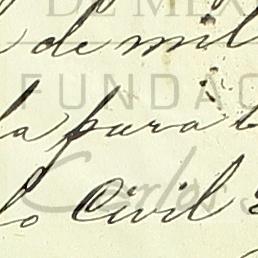 DE MÉX
de mil
FUNDAC
la para
Carlos S
lo Civil